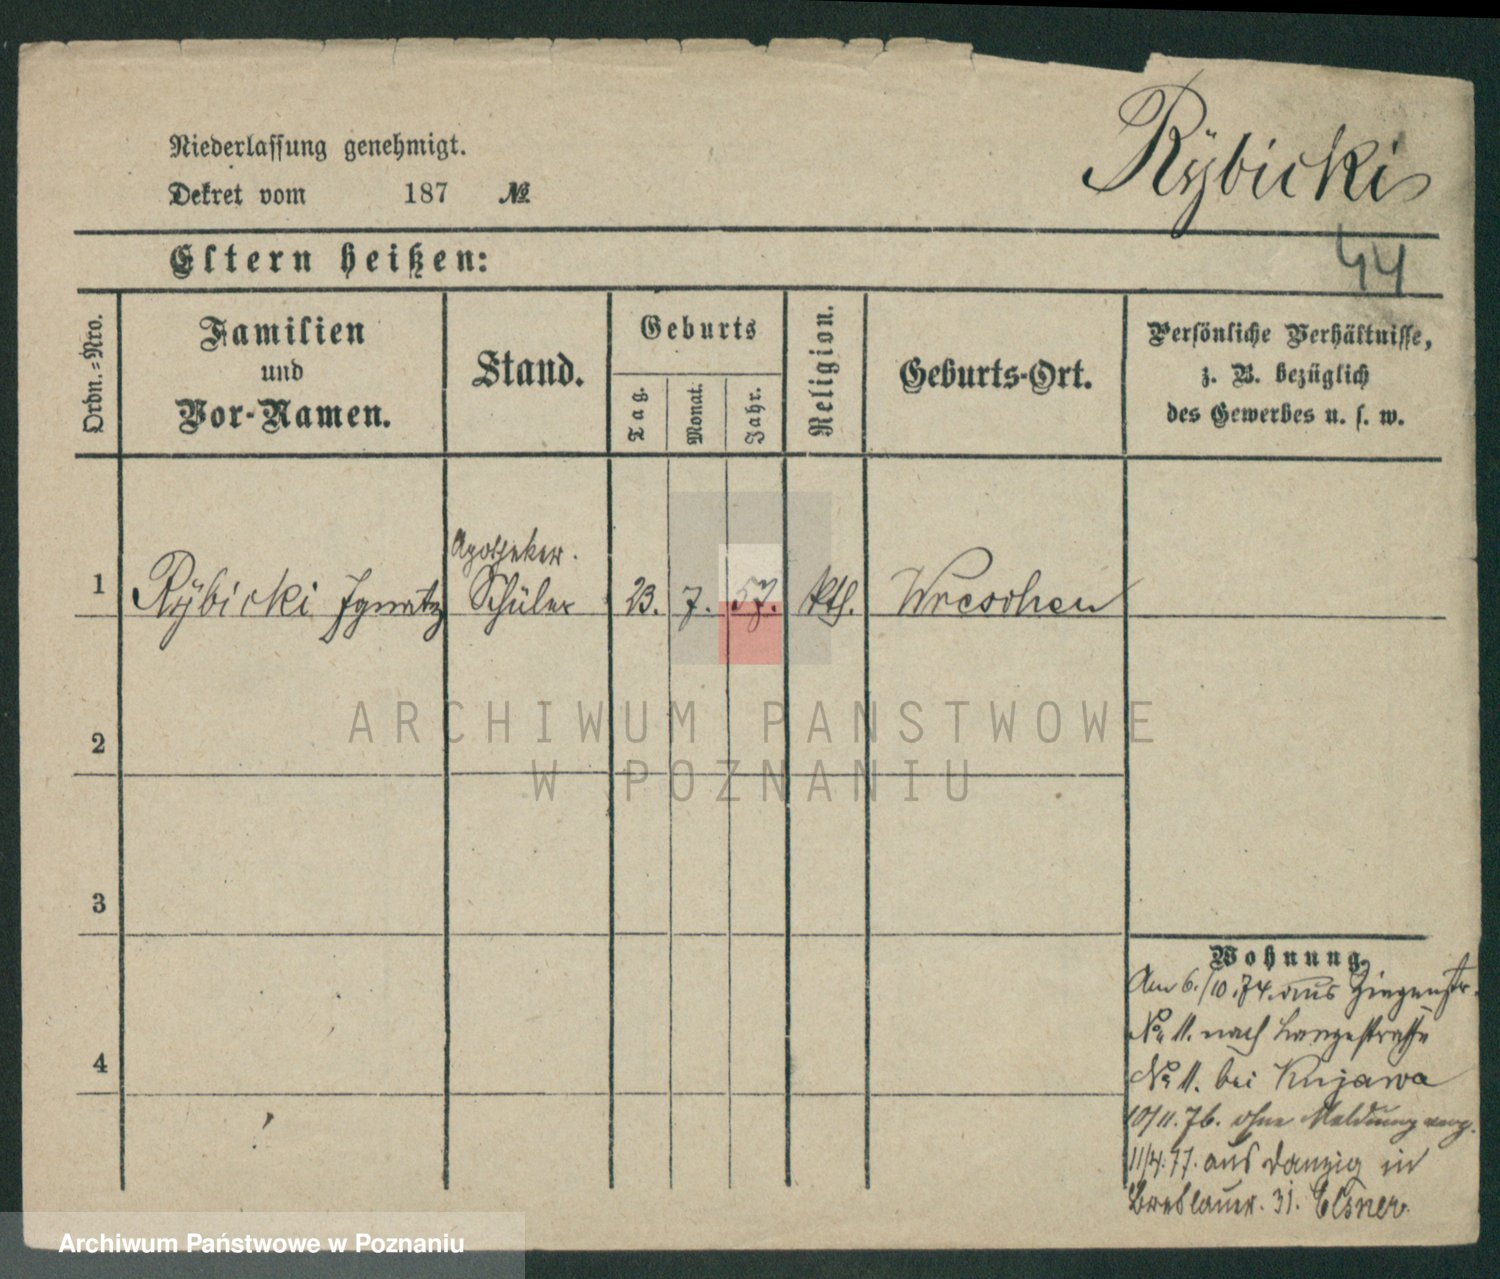 Rÿbicki
Niederlassung genehmigt.
Dekret vom 187 №
44
Eltern heißen:
Ordn.-Nro.
Familien
und
Vor-Namen.
Stand.
Geburts
Tag.
Monat.
Jahr.
Religion.
Geburts-Ort.
Persönliche Verhältnisse,
z. B. bezüglich
des Gewerbes u. s. w.
Apotheker.
1 Rÿbicki Ignatz Schüler 23. 7. 57. kth. Wreschen
ARCHIWUM PAŃSTWOWE
W POZNANIU
2
3
4
Wohnung.
Am 6./10.74. aus Ziegenstr.
No 11. nach Langestrasse
No 11. bei Kujawa
10/11.76. ohne Meldung verz.
11/4.77. aus Danzig in
Breslauer. 31. Elsner.
Archiwum Państwowe w Poznaniu